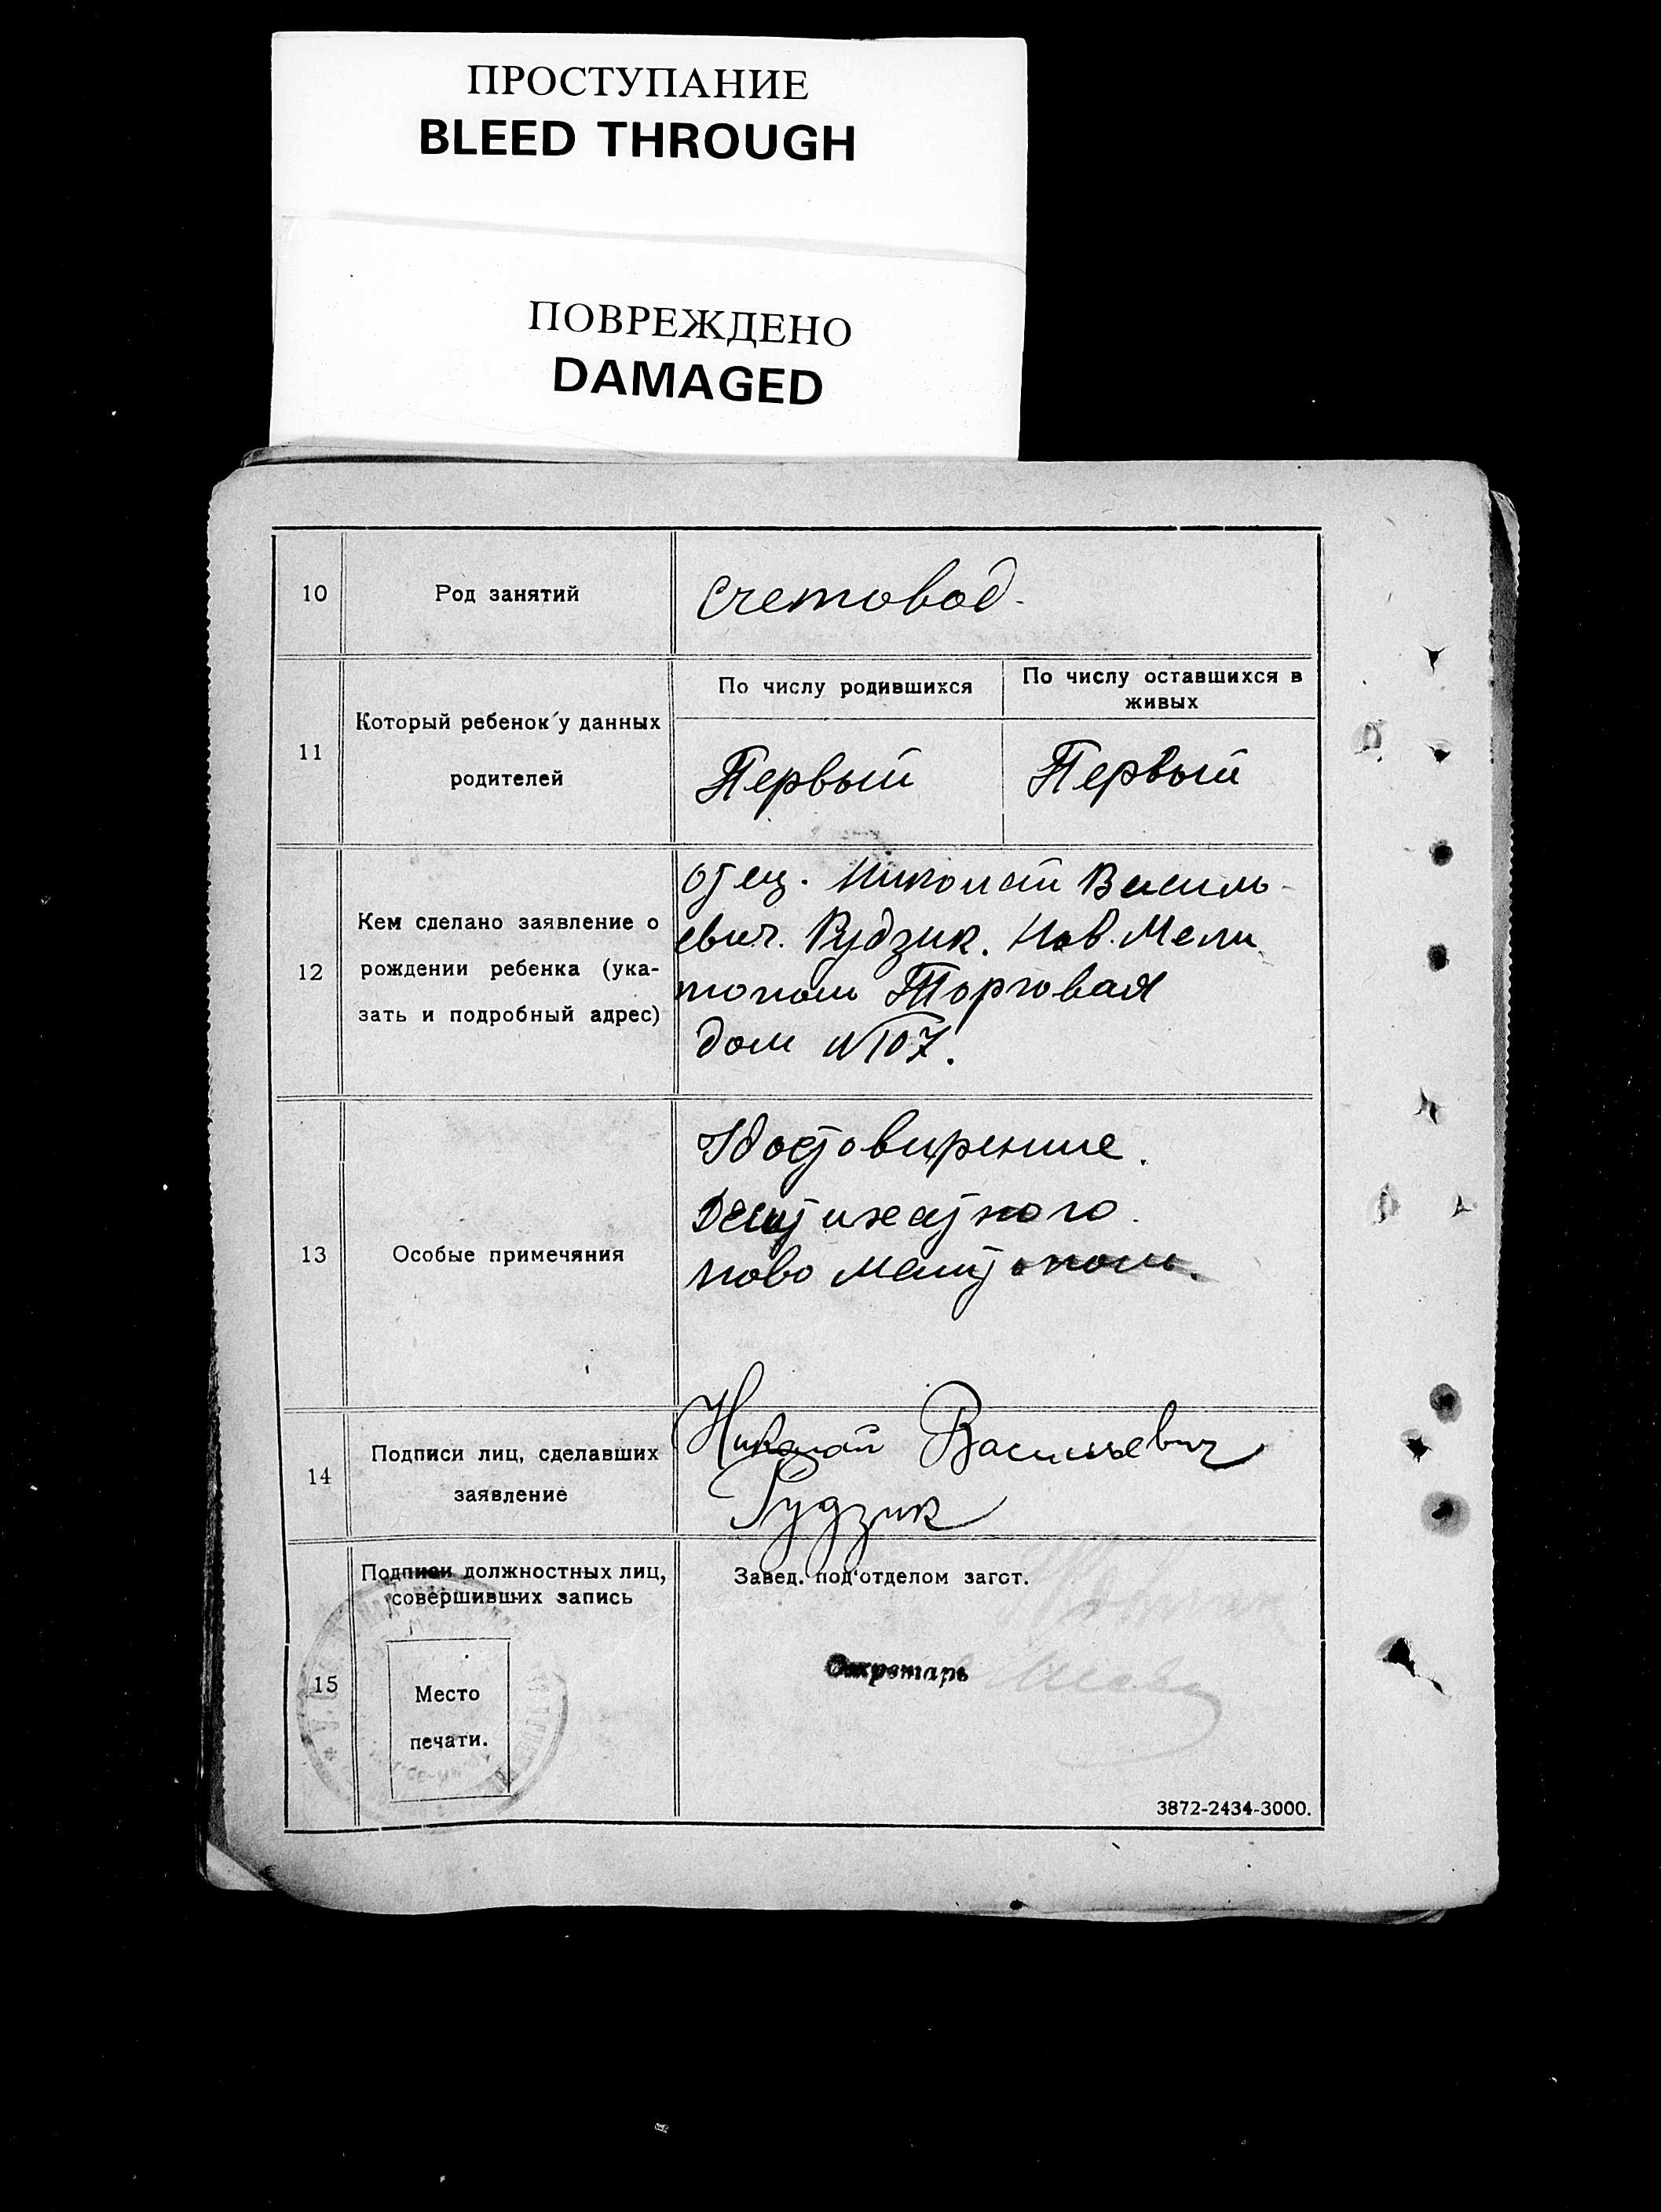 ПРОСТУПАНИЕ
BLEED THROUGH
ПОВРЕЖДЕНО
DAMAGED
10
Род занятий
счетовод.
11
Который ребенок у данных
родителей
По числу родившихся
По числу оставшихся в
живых
Первый
Первый
12
Кем сделано заявление о
рождении ребенка (ука-
зать и подробный адрес)
отец. Николай Василь-
евич. Рудзик. Нов. Мели
тополь Торговая
дом №107.
13
Особые примечяния
ново
14
Подписи лиц, сделавших
заявление
Николай Васильевич
Рудзик
15
Подписи должностных лиц,
совершивших запись
Место
печати.
Завед. под'отделом загст.
Секретарь
3872-2434-3000.